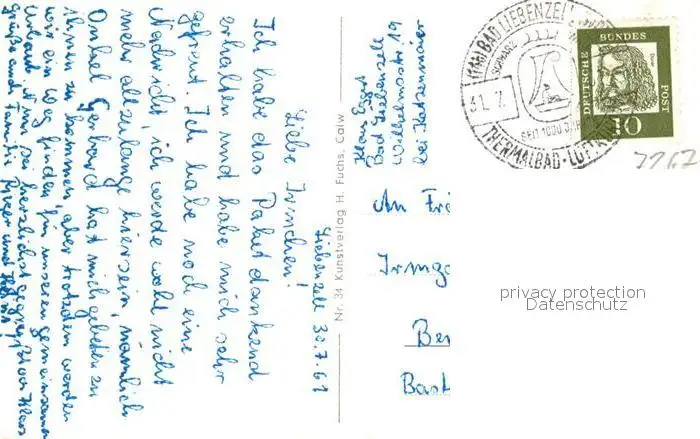 Liebenzell 30.7.61
Liebe Irmchen!
Ich habe das Paket dankend
erhalten und habe mich sehr
gefreut. Ich habe noch eine
Nachricht, ich werde wohl nicht
mehr allzulange hiersein, nämlich
Onkel Gerhard hat mich gebeten zu
ihnen zu kommen, aber trotzdem werden
wir ein Weg finden für unseren gemeinsamen
Urlaub. Nun sei herzlichst gegrüßt von Klaus
Grüße auch Familie
Nr. 34 Kunstverlag H. Fuchs, Calw
Klaus
Bad Liebenzell
Wilhelmstr. 19
bei Katzenmaier
An
Irmga
Be
Bast
(14b) BAD LIEBENZELL
31. 7.
SEIT 1000
THERMALBAD · LUFTK
DEUTSCHE BUNDESPOST
Dürer
10
7762
privacy protection
Datenschutz